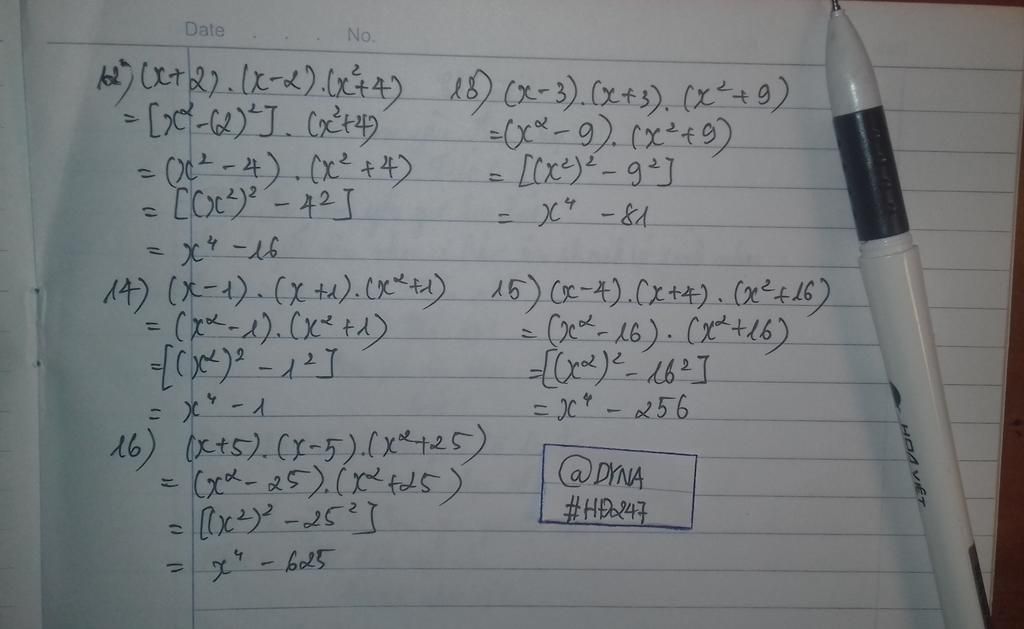 Date . . . No.
12) (x+2).(x-2).(x²+4)
= [x²-(2)²].(x²+4)
= (x²-4).(x²+4)
= [(x²)²-4²]
= x⁴-16
13) (x-3).(x+3).(x²+9)
= (x²-9).(x²+9)
= [(x²)²-9²]
= x⁴-81
14) (x-1).(x+1).(x²+1)
= (x²-1).(x²+1)
= [(x²)²-1²]
= x⁴-1
15) (x-4).(x+4).(x²+16)
= (x²-16).(x²+16)
= [(x²)²-16²]
= x⁴-256
16) (x+5).(x-5).(x²+25)
= (x²-25).(x²+25)
= [(x²)²-25²]
= x⁴-625
@DYNA
#HĐ247
HOA VIỆT